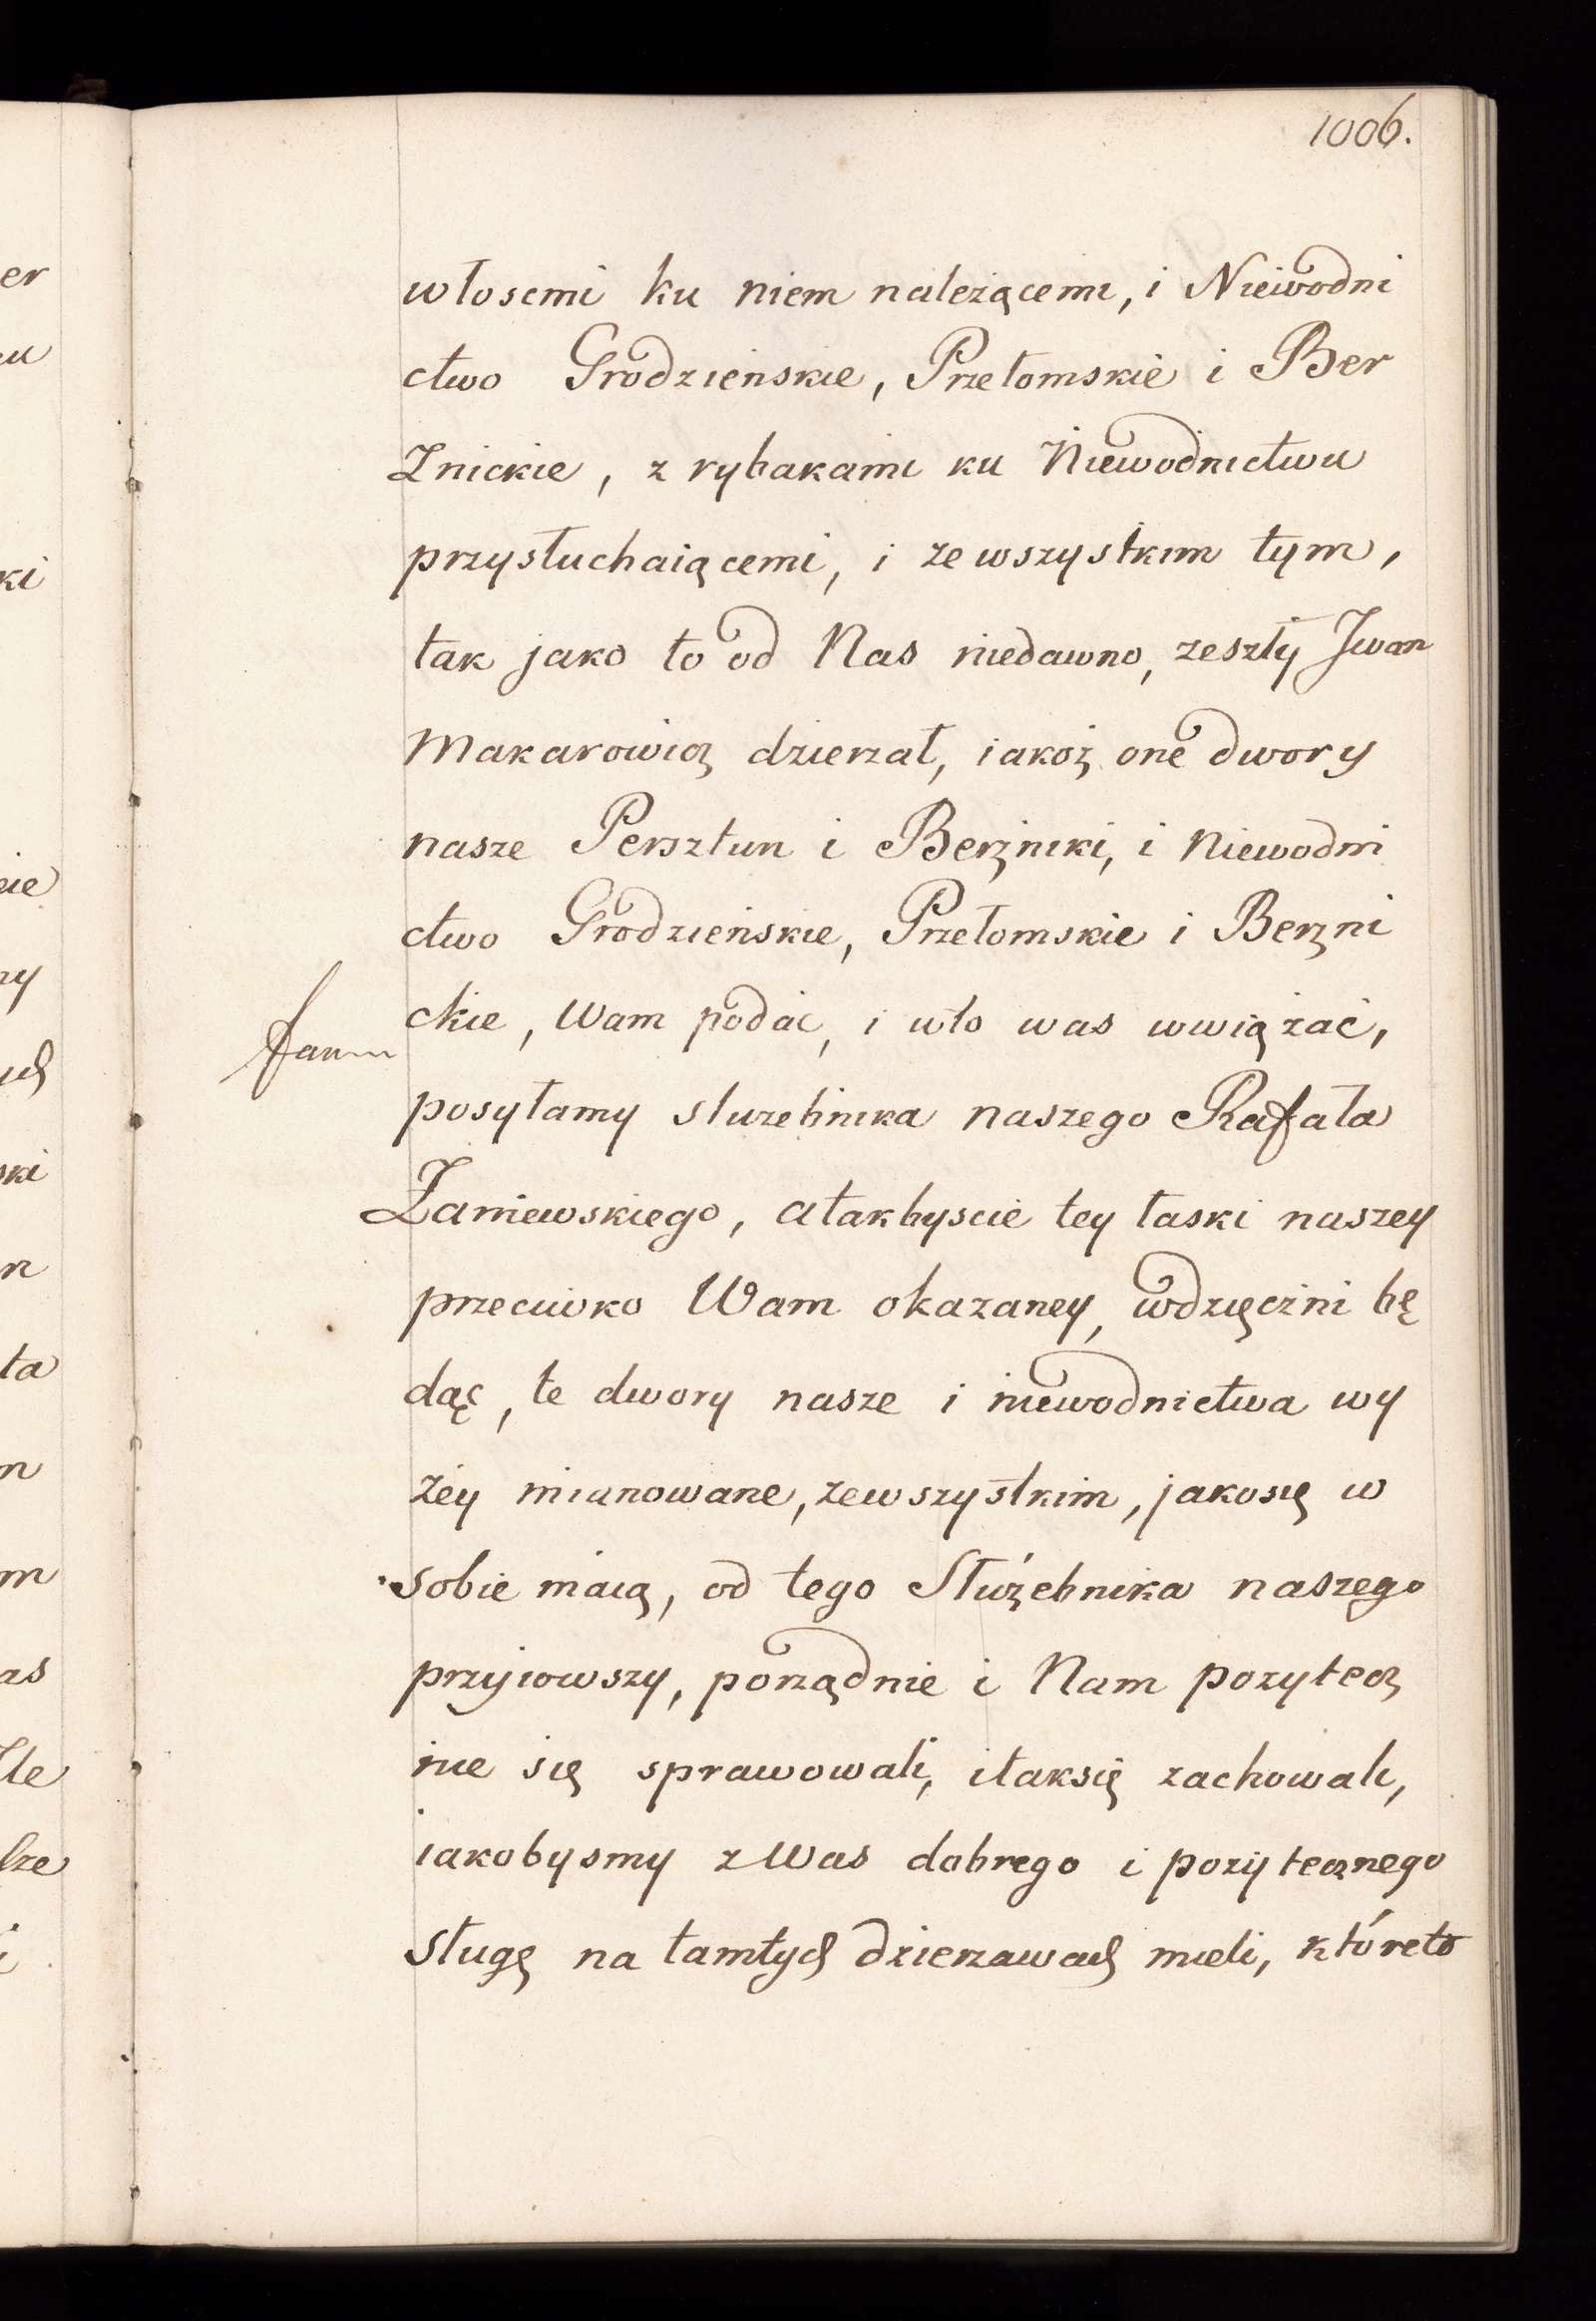 1006.
włoscmi ku niem należącemi, i Niewodni
ctwo Grodzienskie, Przełomskie i Ber
Znickie, z rybakami ku Niewodnictwu
przysłuchaiącemi, i ze wszystkim tym,
tak jako to od Nas niedawno, zeszły Jwan
Makarowicz dzierzał, iakoż one dwory
nasze Persztun i Berżniki, i Niewodni
ctwo Grodzieńskie, Przełomskie i Berżni
ckie, Wam podać, i wto was wwiązać,
posyłamy służebnika naszego Rafała
Zaniewskiego, atakbyscie tey łaski naszey
przeciwko Wam okazaney, wdzięczni bę
dąc, te dwory nasze i niewodnictwa wy
żey mianowane, zewszystkim, jakosię w
sobie maią, od tego Służebnika naszego
przyiowszy, porządnie i Nam pozytecz
nie się sprawowali, itaksię zachowali,
iakobysmy z Was dobrego i pozytecznego
sługę na tamtych dzierzawach mieli, któreto